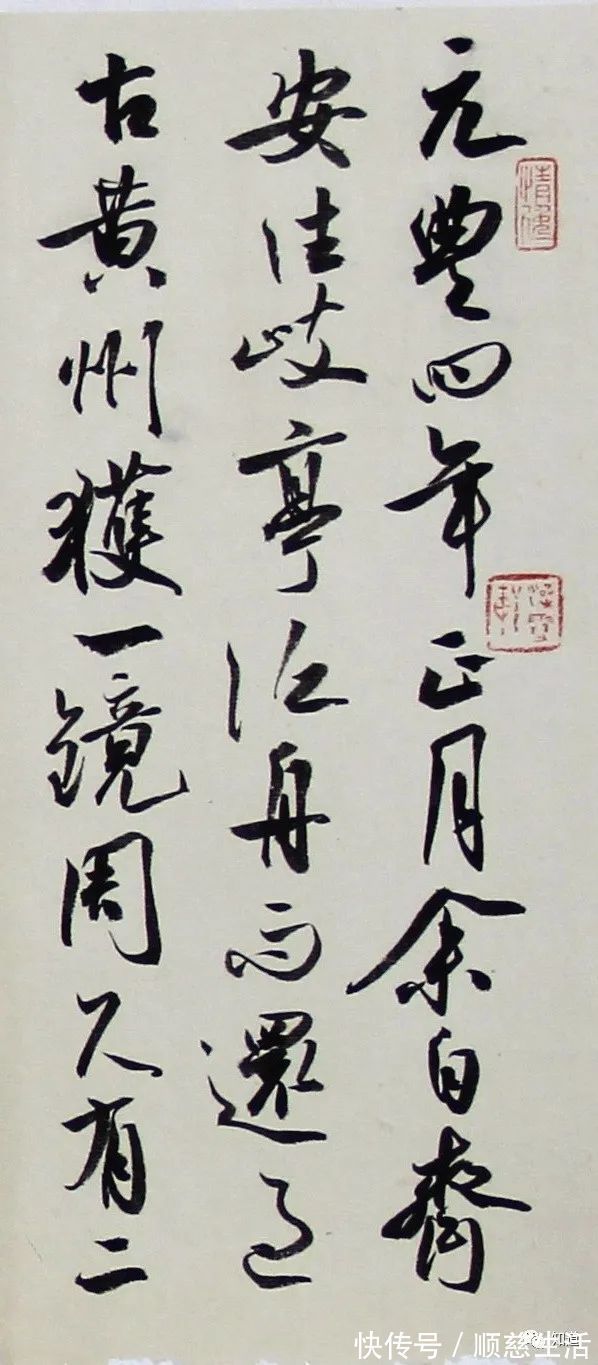 元豐四年正月余自齊
安往岐亭泛舟而還過
古黄州獲一鏡周尺有二
快传号 / 顺慈生活